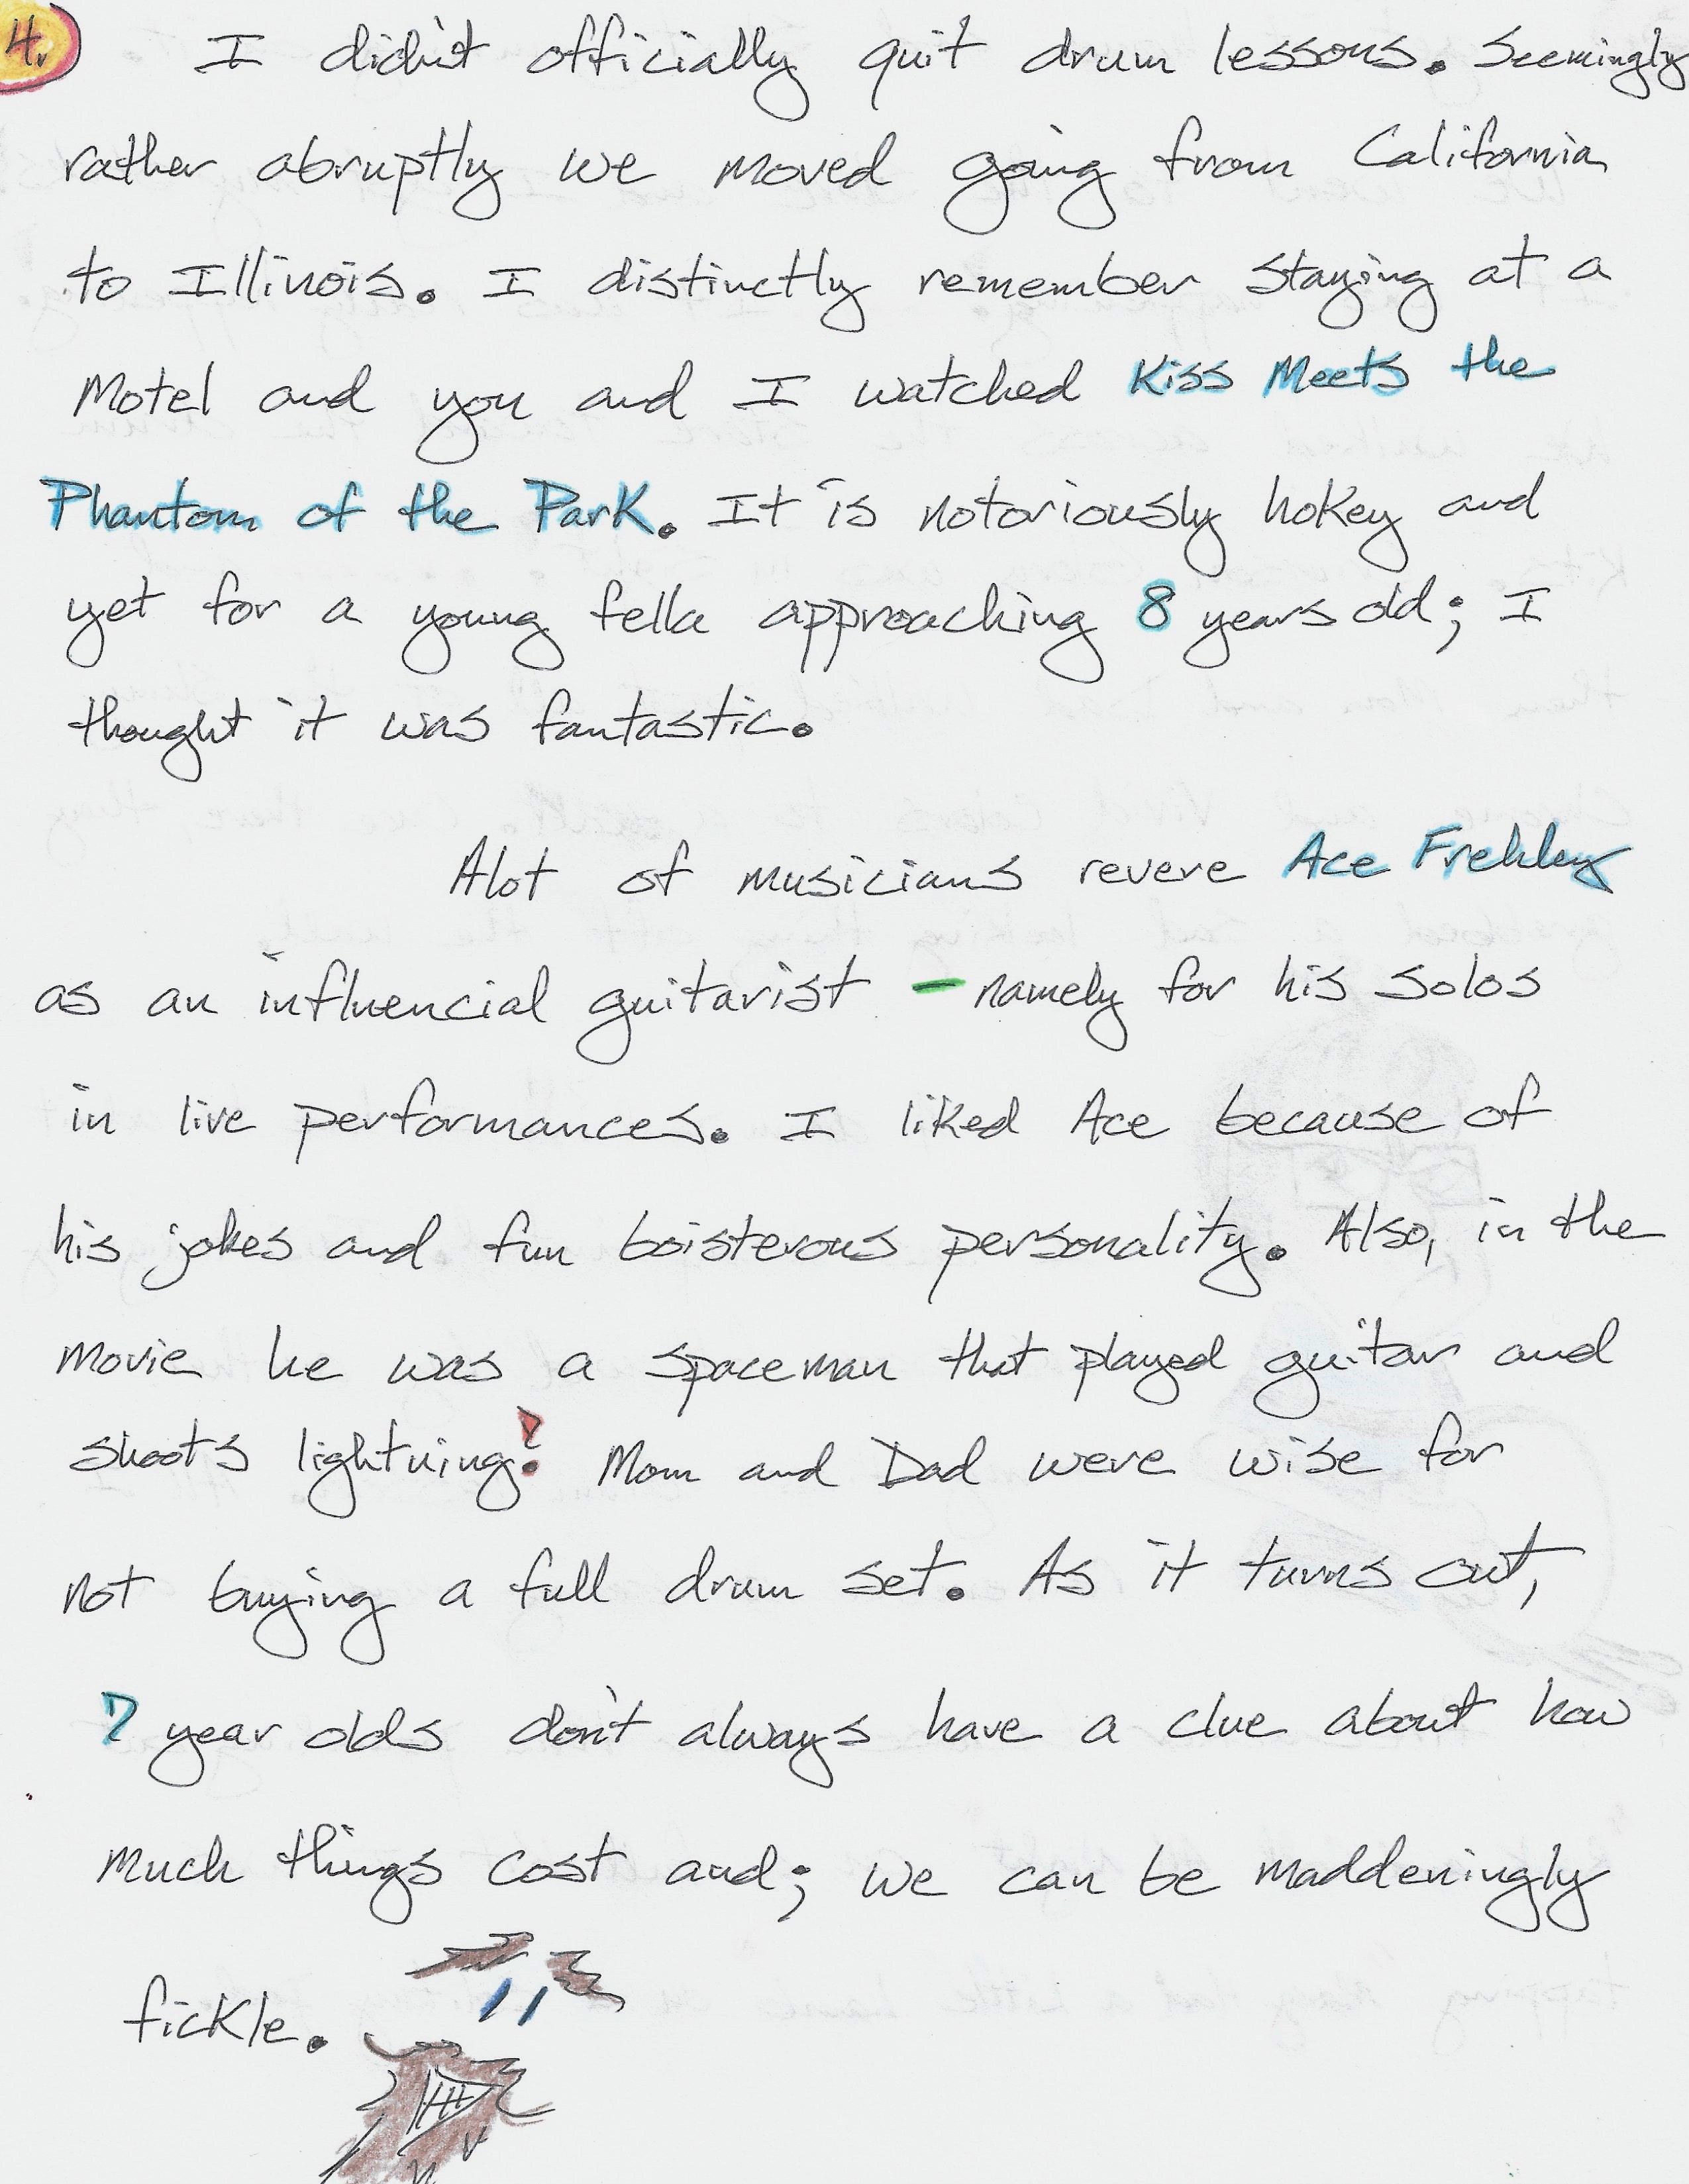 4. I didn't officially quit drum lessons. Seemingly
rather abruptly we moved going from California
to Illinois. I distinctly remember staying at a
Motel and you and I watched Kiss Meets the
Phantom of the Park. It is notoriously hokey and
yet for a young fella approaching 8 years old; I
thought it was fantastic.
Alot of musicians revere Ace Frehley
as an influencial guitarist - namely for his solos
in live performances. I liked Ace because of
his jokes and fun boisterous personality. Also, in the
movie he was a spaceman that played guitar and
shoots lightning! Mom and Dad were wise for
not buying a full drum set. As it turns out,
7 year olds don't always have a clue about how
much things cost and; we can be maddeningly
fickle.